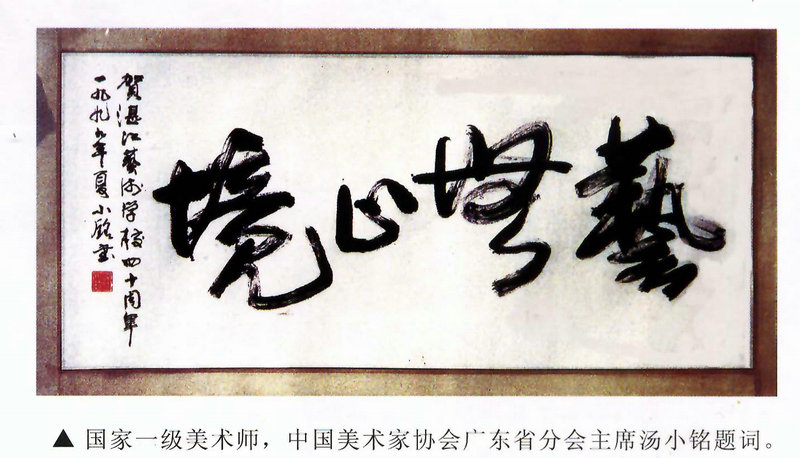 藝無止境
賀湛江藝術学校四十周年
一九九九年夏小铭书
▲ 国家一级美术师，中国美术家协会广东省分会主席汤小铭题词。